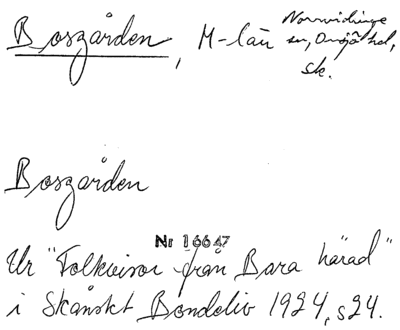 Bosgården, M-län Norrvidinge
sn, Onsjö hd,
Sk.
Bosgården
Nr 16647
Ur "Folkvisor från Bara härad"
i Skånskt Bondeliv 1924, s24.